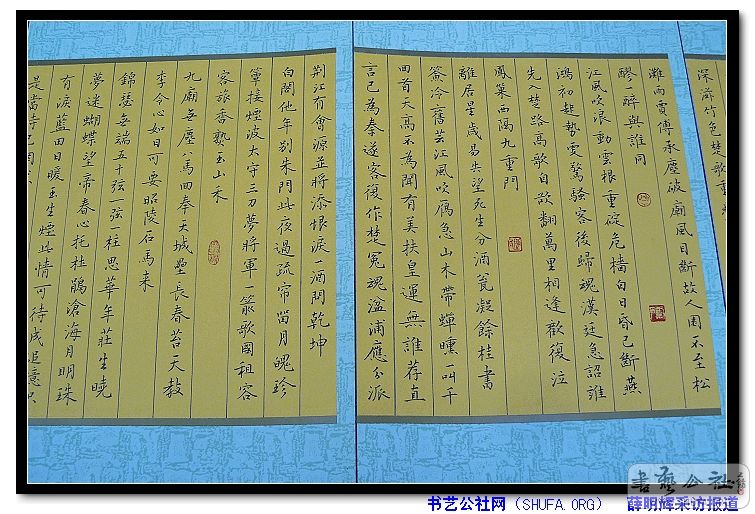 竹色楚歌重
灘雨賈傅承塵破廟風目斷故人困不至松
醪一醉與誰同
江風吹浪動雲根重碇危檣白日昏已斷燕
鴻初起勢更驚騷客後歸魂漢廷急詔誰
先入楚路高歌自欲翻萬里相逢歡復泣
鳳巢西隔九重門
離居星歲易失望死生分酒瓮凝餘桂書
籤冷舊芸江風吹雁急山木帶蟬曛一叫千
回首天高不為聞有美扶皇運無誰荐直
言已為秦逐客復作楚冤魂湓浦應分派
荆江有會源並將添恨淚一洒問乾坤
白閣他年別朱門此夜過疏帘留月魄珍
簟接煙波太守三刀夢將軍一箭歌國租容
客旅香熟玉山禾
九廟無塵八馬回奉天城壘長春苔天教
李令心如日可要昭陵石馬來
錦瑟無端五十弦一弦一柱思華年莊生曉
夢迷蝴蝶望帝春心托杜鵑滄海月明珠
有淚藍田日暖玉生煙此情可待成追憶只
是當時已
書藝公社
书艺公社网（SHUFA.ORG） 薛明辉采访报道